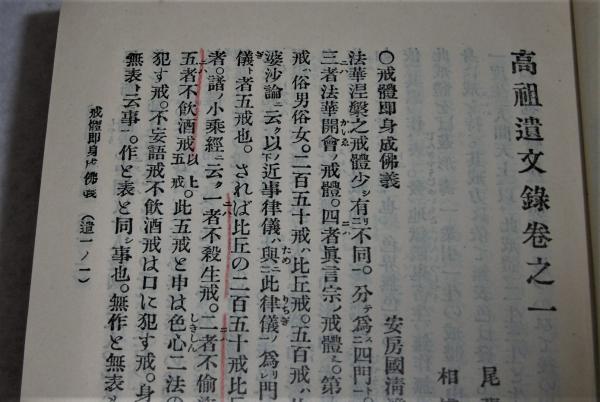 高祖遺文錄卷之一
尾
相
安房國清澄
〇戒體即身成佛義
法華涅槃之戒體少シ有リ不同一。分テ為ス四門ト一。
三者法華開會ノ戒體。四者眞言宗ノ戒體。第
戒ハ俗男俗女。二百五十戒ハ比丘戒。五百戒ハ
婆沙論ニ云ク以下ノ近事律儀ハ與ニ此律儀ノ為リ門
儀ト者五戒也。されば比丘の二百五十戒比丘
者。諸ノ小乘經ニ云ク一者不殺生戒。二者不偷
五者不飲酒戒以上。此五戒と申は色心二法の
犯す戒。不妄語戒不飲酒戒は口に犯す戒。身
無表ト云事。作と表と同シ事也。無作と無表と
戒體即身成佛義 (遺一ノ一)